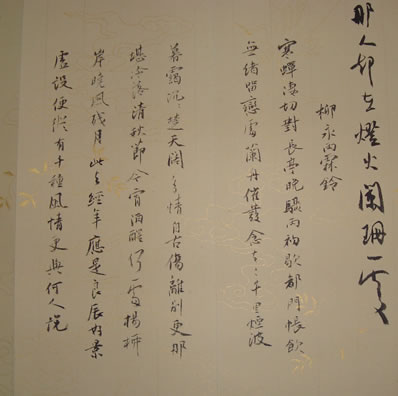 那人却在燈火闌珊處
柳永雨霖鈴
寒蟬凄切對長亭晚驟雨初歇都門帳飲
無緒留戀處蘭舟催發念去々千里煙波
暮靄沉々楚天闊多情自古傷離別更那
堪冷落清秋節今宵酒醒何處楊柳
岸曉風殘月此去經年應是良辰好景
虛設便縱有千種風情更與何人說